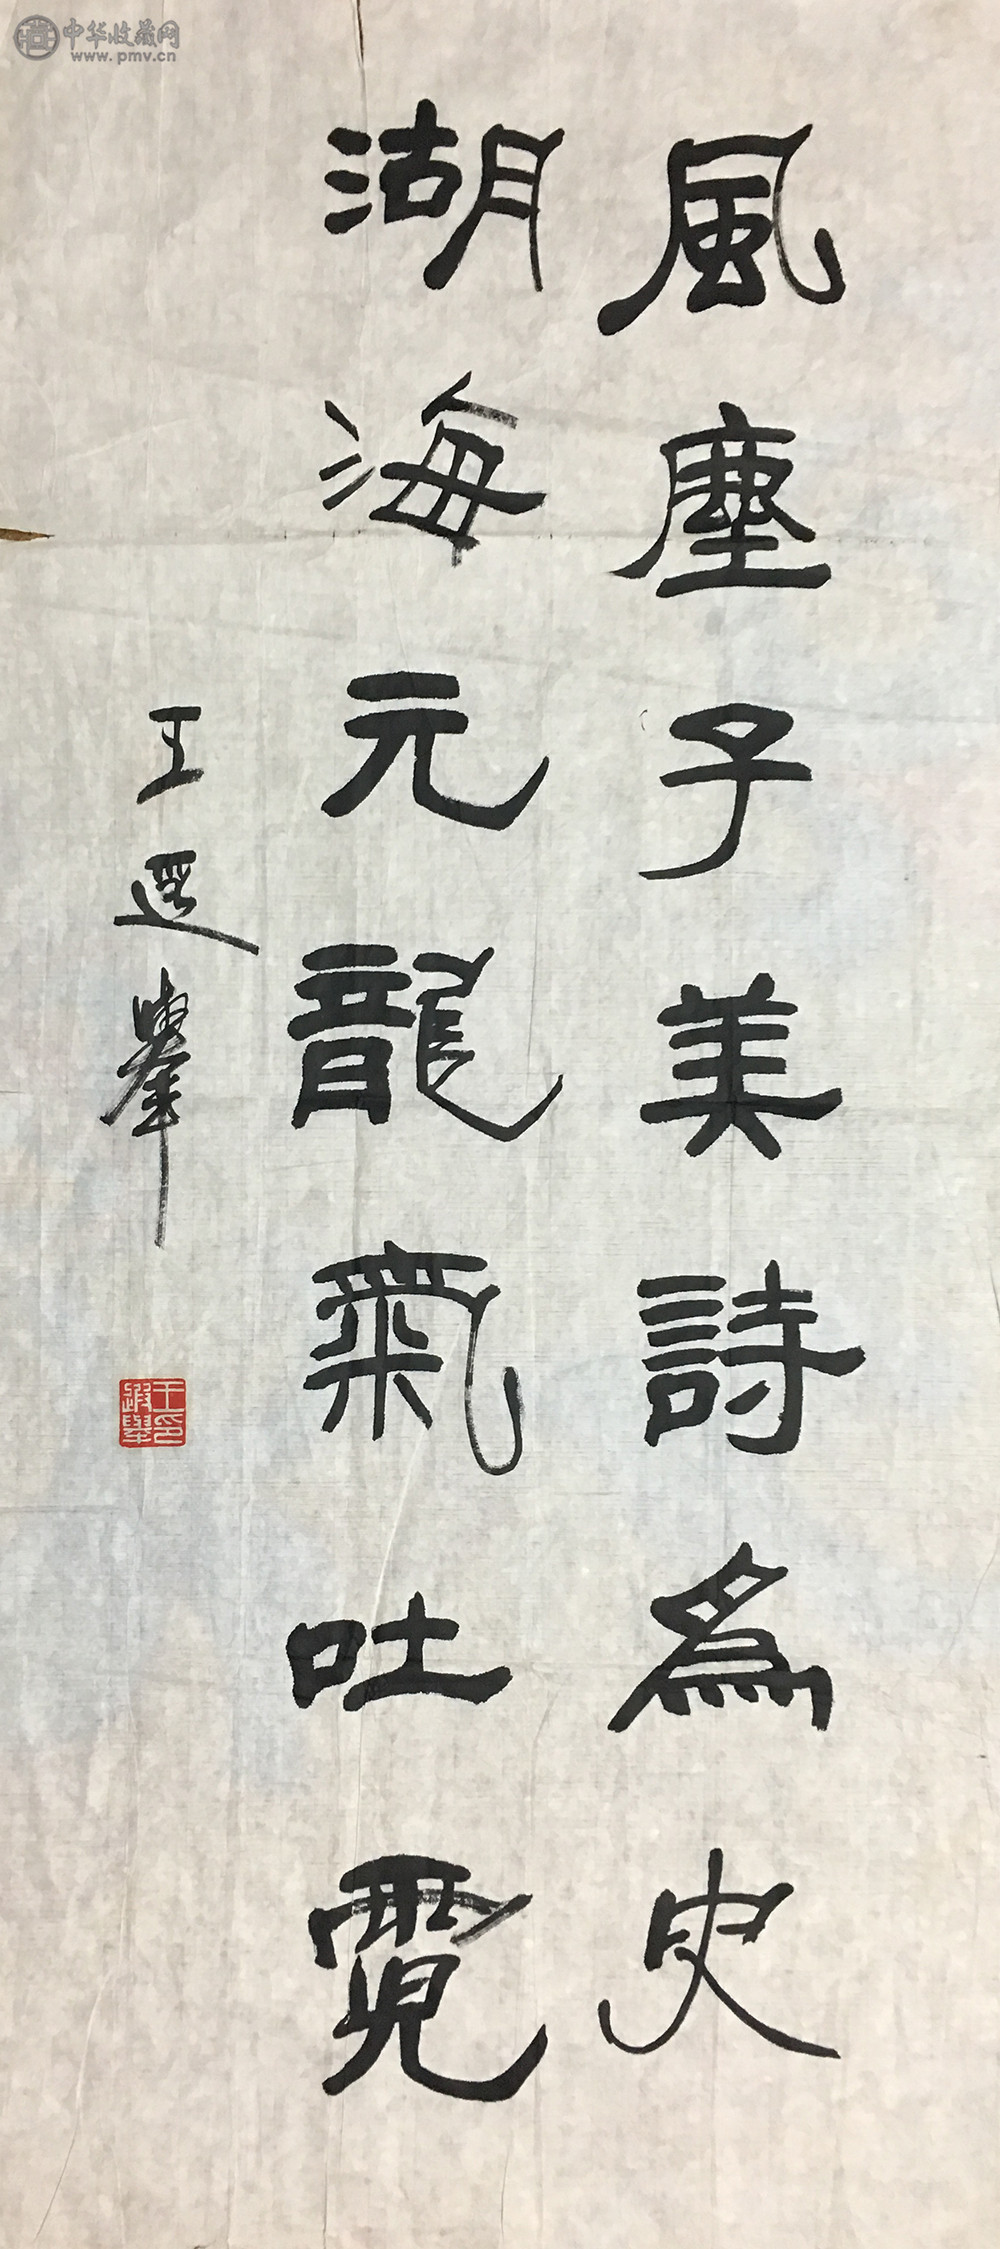 風塵子美詩為史
湖海元龍氣吐霓
王遐舉
王遐舉印
中华收藏网
www.pmv.cn